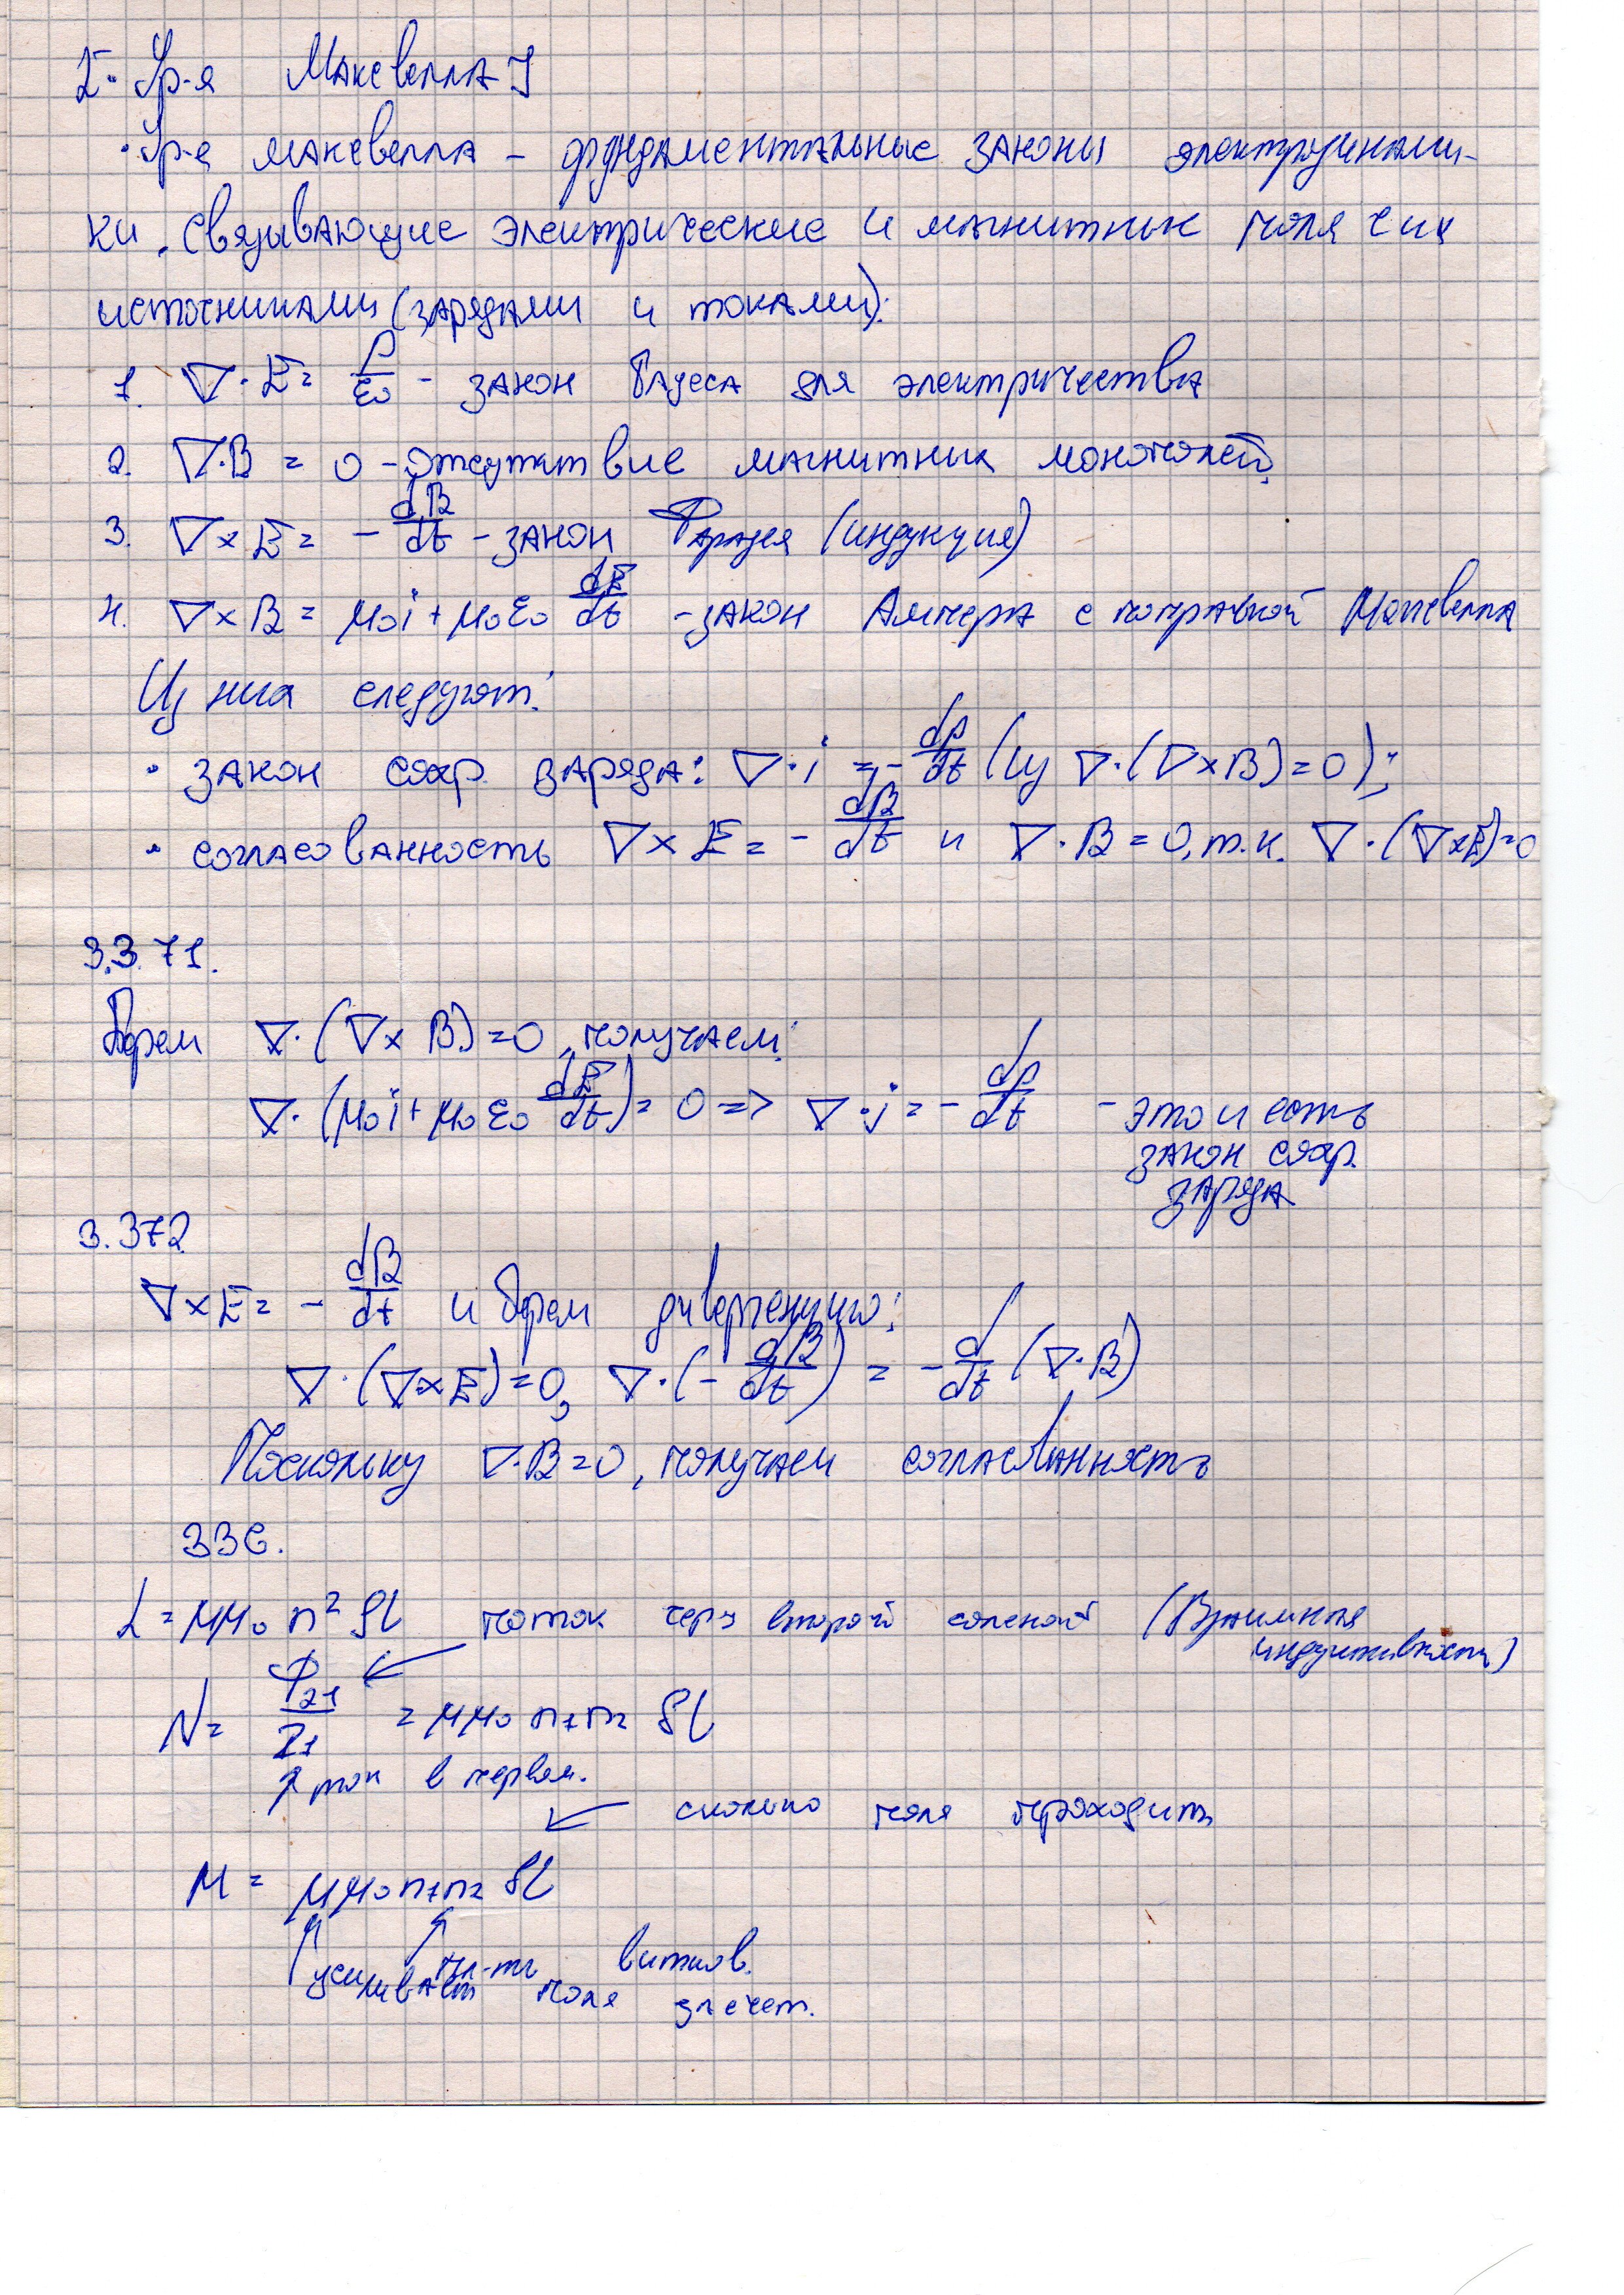 1. Ур-я Максвелла
Ур-я максвелла – фундаментальные законы электродинами-
ки, связывающие электрические и магнитные поля с их
источниками (зарядами и токами):
1. ∇·E = ρ/ε₀ - закон Гаусса для электричества
2. ∇·B = 0 - отсутствие магнитных монополей,
3. ∇×E = - dB/dt - закон Фарадея (индукция)
4. ∇×B = μ₀j + μ₀ε₀ dE/dt - закон Ампера с поправкой Максвелла
Из них следуют:
· закон сохр. заряда: ∇·j = - dρ/dt (из ∇·(∇×B)=0);
· согласованность ∇×E = - dB/dt и ∇·B = 0, т.к. ∇·(∇×E)=0
3.3 71.
Берем ∇·(∇×B)=0, получаем:
∇·(μ₀j + μ₀ε₀ dE/dt) = 0 => ∇·j = - dρ/dt - это и есть
закон сохр.
заряда
3.372
∇×E = - dB/dt и берем дивергенцию:
∇·(∇×E)=0, ∇·(- dB/dt) = - d/dt (∇·B)
Поскольку ∇·B=0, получаем согласованность
336.
L = μμ₀ n² Sl поток через второй соленоид (Взаимная
индуктивность)
N = Φ₂₁/I₁ = μμ₀ n₁n₂ Sl
↑ ток в первом.
сколько поля проходит
M = μμ₀n₁n₂ Sl
пл-ть витков.
усиливает поля за счет.